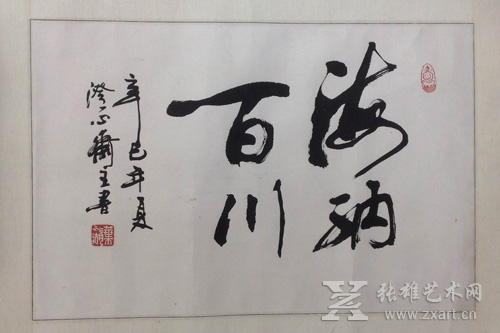 海納
百川
辛巳年夏
澄心齋主書
张雄艺术网
www.zxart.cn